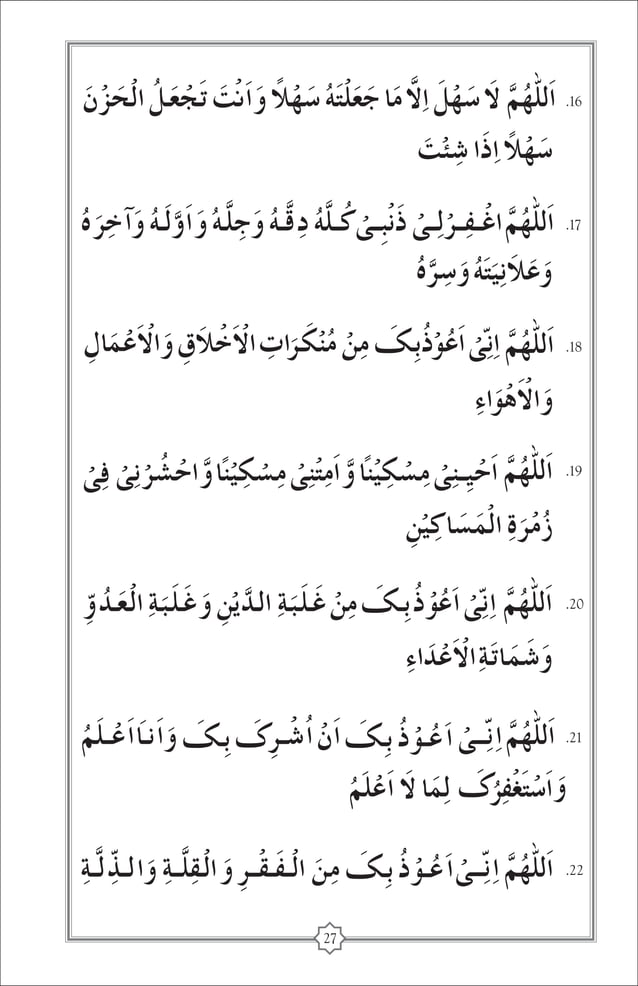 16. اَللّٰهُمَّ لَا سَهْلَ اِلَّا مَا جَعَلْتَهُ سَهْلًا وَ اَنْتَ تَجْعَلُ الْحَزْنَ
سَهْلًا اِذَا شِئْتَ
17. اَللّٰهُمَّ اغْفِرْلِیْ ذَنْبِیْ كُلَّهُ دِقَّهُ وَجِلَّهُ وَ اَوَّلَهُ وَآخِرَهُ
وَعَلَانِيَتَهُ وَسِرَّهُ
18. اَللّٰهُمَّ اِنِّیْ اَعُوْذُبِکَ مِنْ مُنْكَرَاتِ الْاَخْلَاقِ وَالْاَعْمَالِ
وَالْاَهْوَاءِ
19. اَللّٰهُمَّ اَحْيِنِیْ مِسْكِيْنًا وَّ اَمِتْنِیْ مِسْكِيْنًا وَّ احْشُرْنِیْ فِیْ
زُمْرَةِ الْمَسَاكِيْنِ
20. اَللّٰهُمَّ اِنِّیْ اَعُوْذُ بِکَ مِنْ غَلَبَةِ الدَّيْنِ وَ غَلَبَةِ الْعَدُوِّ
وَشَمَاتَةِ الْاَعْدَاءِ
21. اَللّٰهُمَّ اِنِّیْ اَعُوْذُ بِکَ اَنْ اُشْرِکَ بِکَ وَ اَنَا اَعْلَمُ
وَ اَسْتَغْفِرُکَ لِمَا لَا اَعْلَمُ
22. اَللّٰهُمَّ اِنِّیْ اَعُوْذُ بِکَ مِنَ الْفَقْرِ وَ الْقِلَّةِ وَ الذِّلَّةِ
27